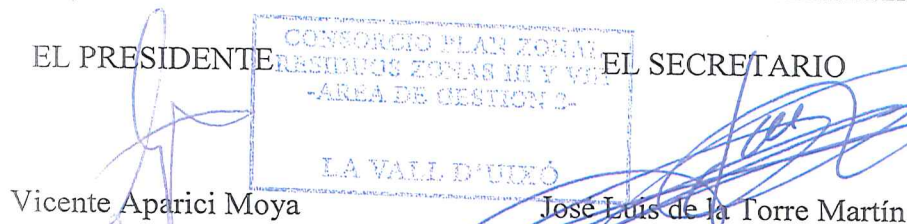 EL PRESIDENTE
CONSORCIO PLAN ZONAL
RESIDUOS ZONAS III Y VIII
-AREA DE GESTION 2-
LA VALL D'UIXÓ
EL SECRETARIO
Vicente Aparici Moya
Jose Luis de la Torre Martín